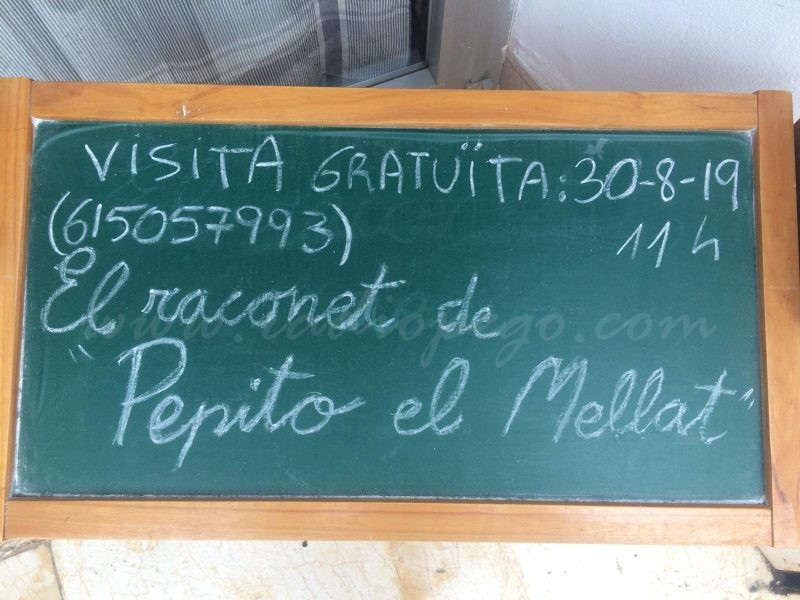 VISITA GRATUÏTA: 30-8-19
(615057993) 11 h
El raconet de
www.radiopego.com
"Pepito el Mellat"